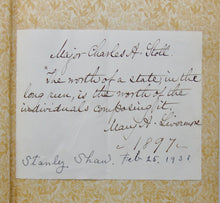 Major Charles H. Stott
"The worth of a state, in the
long run, is the worth of the
individuals composing it.
Mary A. Livermore
1897.
Stanley Shaw. Feb 25, 1938